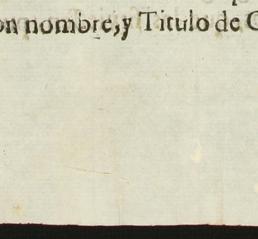 on nombre, y Titulo de C